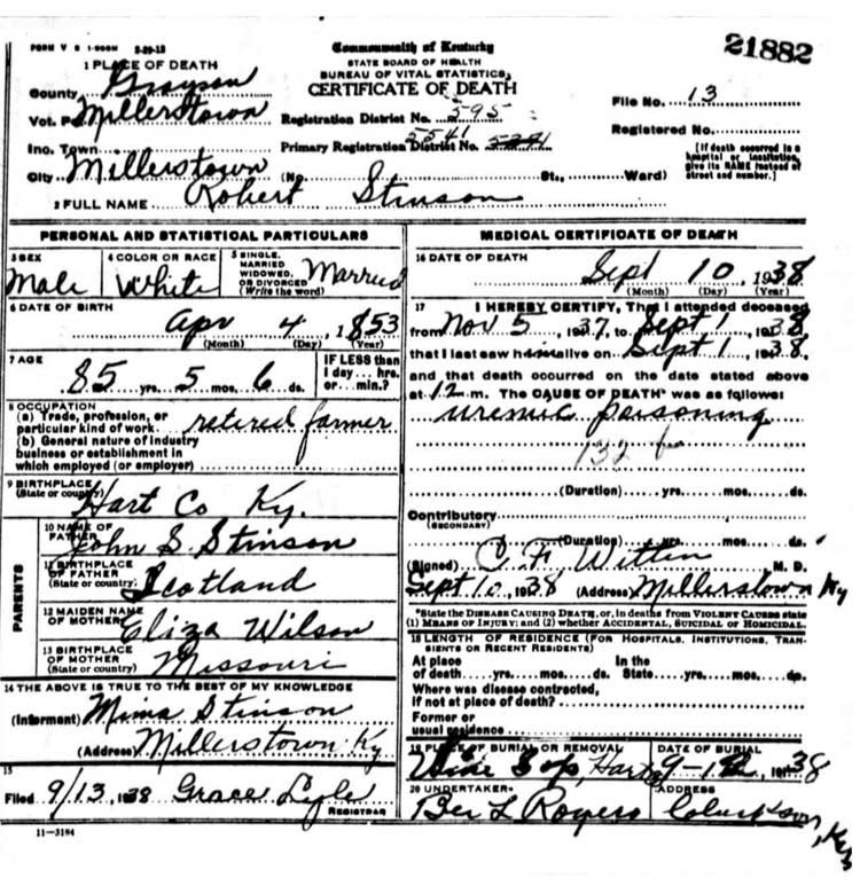 FORM V S 1-500M 3-29-13
Commonwealth of Kentucky
STATE BOARD OF HEALTH
BUREAU OF VITAL STATISTICS
CERTIFICATE OF DEATH
21882
1 PLACE OF DEATH
County Grayson
Vot. P Millerstown
Inc. Town
City Millerstown
Registration District No. 595
Primary Registration District No. 5541
File No. 13
Registered No.
(No. St., Ward)
[If death occurred in a hospital or institution, give its NAME instead of street and number.]
2 FULL NAME Robert Stinson
PERSONAL AND STATISTICAL PARTICULARS
3 SEX Male
4 COLOR OR RACE White
5 SINGLE, MARRIED WIDOWED, OR DIVORCED (Write the word) Married
6 DATE OF BIRTH
Apr 4, 1853
(Month) (Day) (Year)
7 AGE
85 yrs. 5 mos. 6 ds.
IF LESS than 1 day... hrs. or... min.?
8 OCCUPATION
(a) Trade, profession, or particular kind of work retired farmer
(b) General nature of industry business or establishment in which employed (or employer)
9 BIRTHPLACE
(State or country) Hart Co Ky.
PARENTS
10 NAME OF FATHER John S. Stinson
11 BIRTHPLACE OF FATHER (State or country) Scotland
12 MAIDEN NAME OF MOTHER Eliza Wilson
13 BIRTHPLACE OF MOTHER (State or country) Missouri
14 THE ABOVE IS TRUE TO THE BEST OF MY KNOWLEDGE
(Informant) Mima Stinson
(Address) Millerstown Ky
15
Filed 9/13, 1938 Grace Lyle
REGISTRAR
11-3184
MEDICAL CERTIFICATE OF DEATH
16 DATE OF DEATH
Sept 10, 1938
(Month) (Day) (Year)
17 I HEREBY CERTIFY, That I attended deceased
from Nov 5, 1937, to Sept 1, 1938
that I last saw him alive on Sept 1, 1938,
and that death occurred on the date stated above
at 12 m. The CAUSE OF DEATH* was as follows:
uremic poisoning
132
(Duration) yrs. mos. ds.
Contributory
(SECONDARY)
(Duration) yrs. mos. ds.
(Signed) C. F. Witten M. D.
Sept 10, 1938 (Address) Millerstown Ky
*State the DISEASE CAUSING DEATH, or, in deaths from VIOLENT CAUSES state
(1) MEANS OF INJURY; and (2) whether ACCIDENTAL, SUICIDAL or HOMICIDAL
18 LENGTH OF RESIDENCE (FOR HOSPITALS, INSTITUTIONS, TRANSIENTS OR RECENT RESIDENTS)
At place of death yrs. mos. ds. In the State yrs. mos. ds.
Where was disease contracted, if not at place of death?
Former or usual residence
19 PLACE OF BURIAL OR REMOVAL
Hart
DATE OF BURIAL
1938
20 UNDERTAKER
Ber L Rogers
ADDRESS
Ky